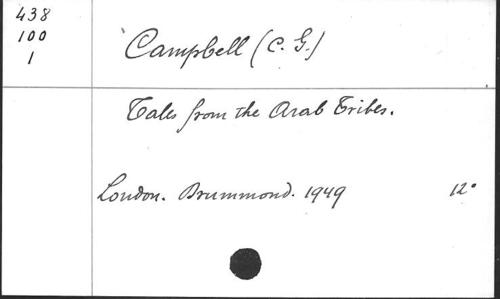 438
100
1
Campbell (C. G.)
Tales from the Arab Tribes.
London. Drummond. 1949 12°